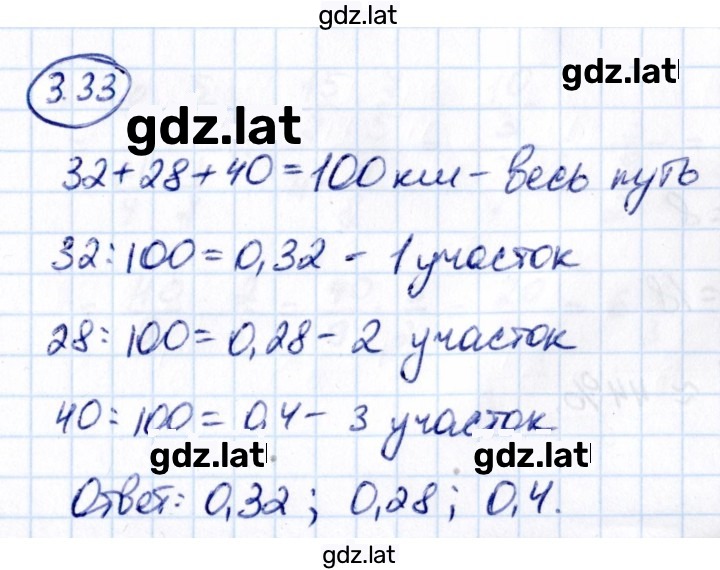 gdz.lat
3.33
gdz.lat
gdz.lat
32+28+40=100км - весь путь
32:100=0,32 - 1 участок
28:100=0,28 - 2 участок
40:100=0,4 - 3 участок
gdz.lat
gdz.lat
Ответ: 0,32; 0,28; 0,4.
gdz.lat